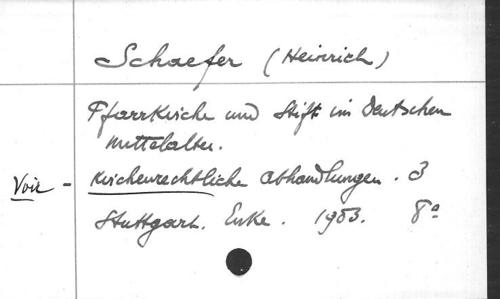 Schaefer (Heinrich)
Pfarrkirche und Stift im Deutschen
Mittelalter.
Voir - Kirchenrechtliche Abhandlungen. 3
Stuttgart. Enke. 1903. 8º